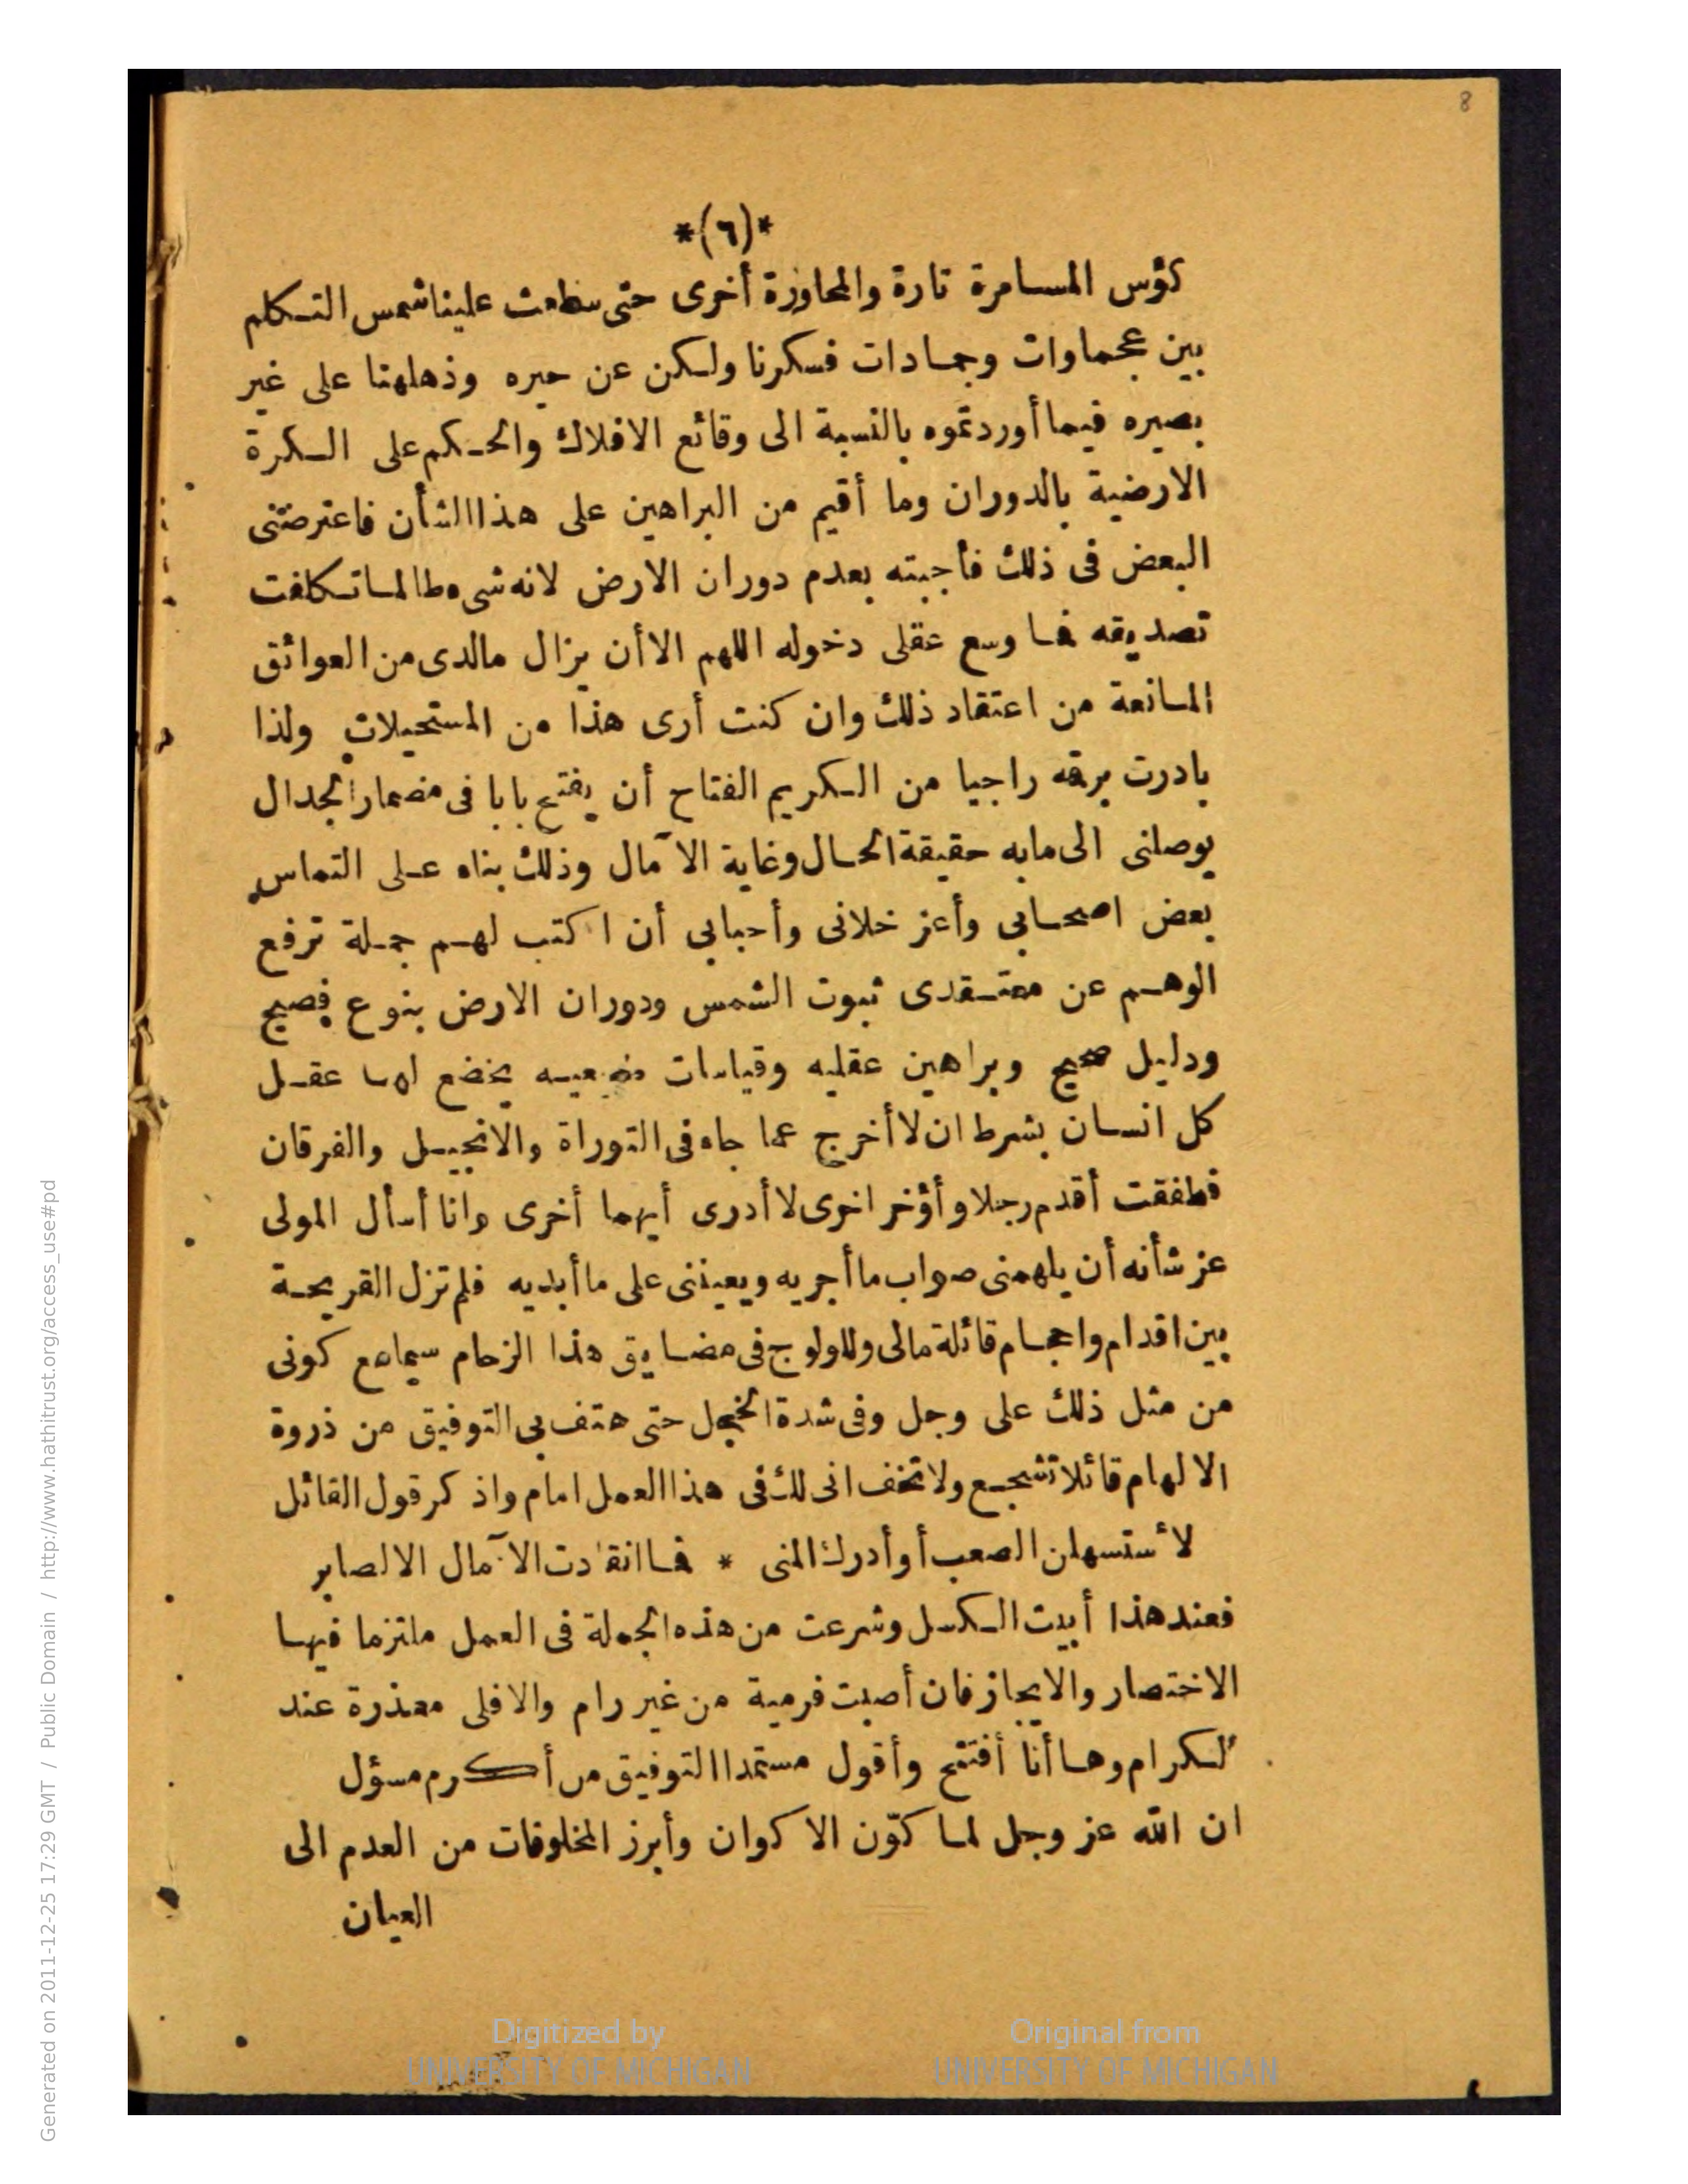 8
*(٦)*
كؤس المسامرة تارة والمحاورة أخرى حتى سطعت علينا شمس التكلم
بين عجماوات وجمادات فسكرنا ولكن عن حيره وذهلهنا على غير
بصيره فيما أوردتموه بالنسبة الى وقائع الافلاك والحكم على الكرة
الارضية بالدوران وما أقيم من البراهين على هذا الشأن فاعترضنى
البعض فى ذلك فأجبته بعدم دوران الارض لانه شىء طالما تكلفت
تصديقه فما وسع عقلى دخوله اللهم الا أن يزال مالدى من العوائق
المانعة من اعتقاد ذلك وان كنت أرى هذا من المستحيلات ولذا
بادرت برقه راجيا من الكريم الفتاح أن يفتح بابا فى مضمار الجدال
يوصلنى الى مابه حقيقة الحال وغاية الآمال وذلك بناه على التماس
بعض اصحابى وأعز خلانى وأحبابى أن اكتب لهم جملة ترفع
الوهم عن معتقدى ثبوت الشمس ودوران الارض بنوع فصيح
ودليل صحيح وبراهين عقليه وقياسات يخضع لها عقل
كل انسان بشرط ان لا أخرج عما جاء فى التوراة والانجيل والفرقان
فطفقت أقدم رجلا وأؤخر اخرى لا أدرى أيهما أخرى وانا أسأل المولى
عز شأنه أن يلهمنى صواب ما أجريه ويعيننى على ما أبديه فلم تزل القريحة
بين اقدام واحجام قائلة مالى وللولوج فى مضايق هذا الزحام سيما مع كونى
من مثل ذلك على وجل وفى شدة الخجل حتى هتف بى التوفيق من ذروة
الالهام قائلا تشجع ولا تخف انى لك فى هذا العمل امام واذكر قول القائل
لأستسهلن الصعب أو أدرك المنى * فما انقادت الآمال الا لصابر
فعند هذا أبيت الكسل وشرعت من هذه الجملة فى العمل ملتزما فيها
الاختصار والايجاز فان أصبت فرمية من غير رام والا فلى معذرة عند
الكرام وها أنا أفتتح وأقول مستمدا التوفيق من أكرم مسؤل
ان الله عز وجل لما كوّن الاكوان وأبرز المخلوقات من العدم الى
العيان
Generated on 2011-12-25 17:29 GMT / Public Domain / http://www.hathitrust.org/access_use#pd
Digitized by
UNIVERSITY OF MICHIGAN
Original from
UNIVERSITY OF MICHIGAN